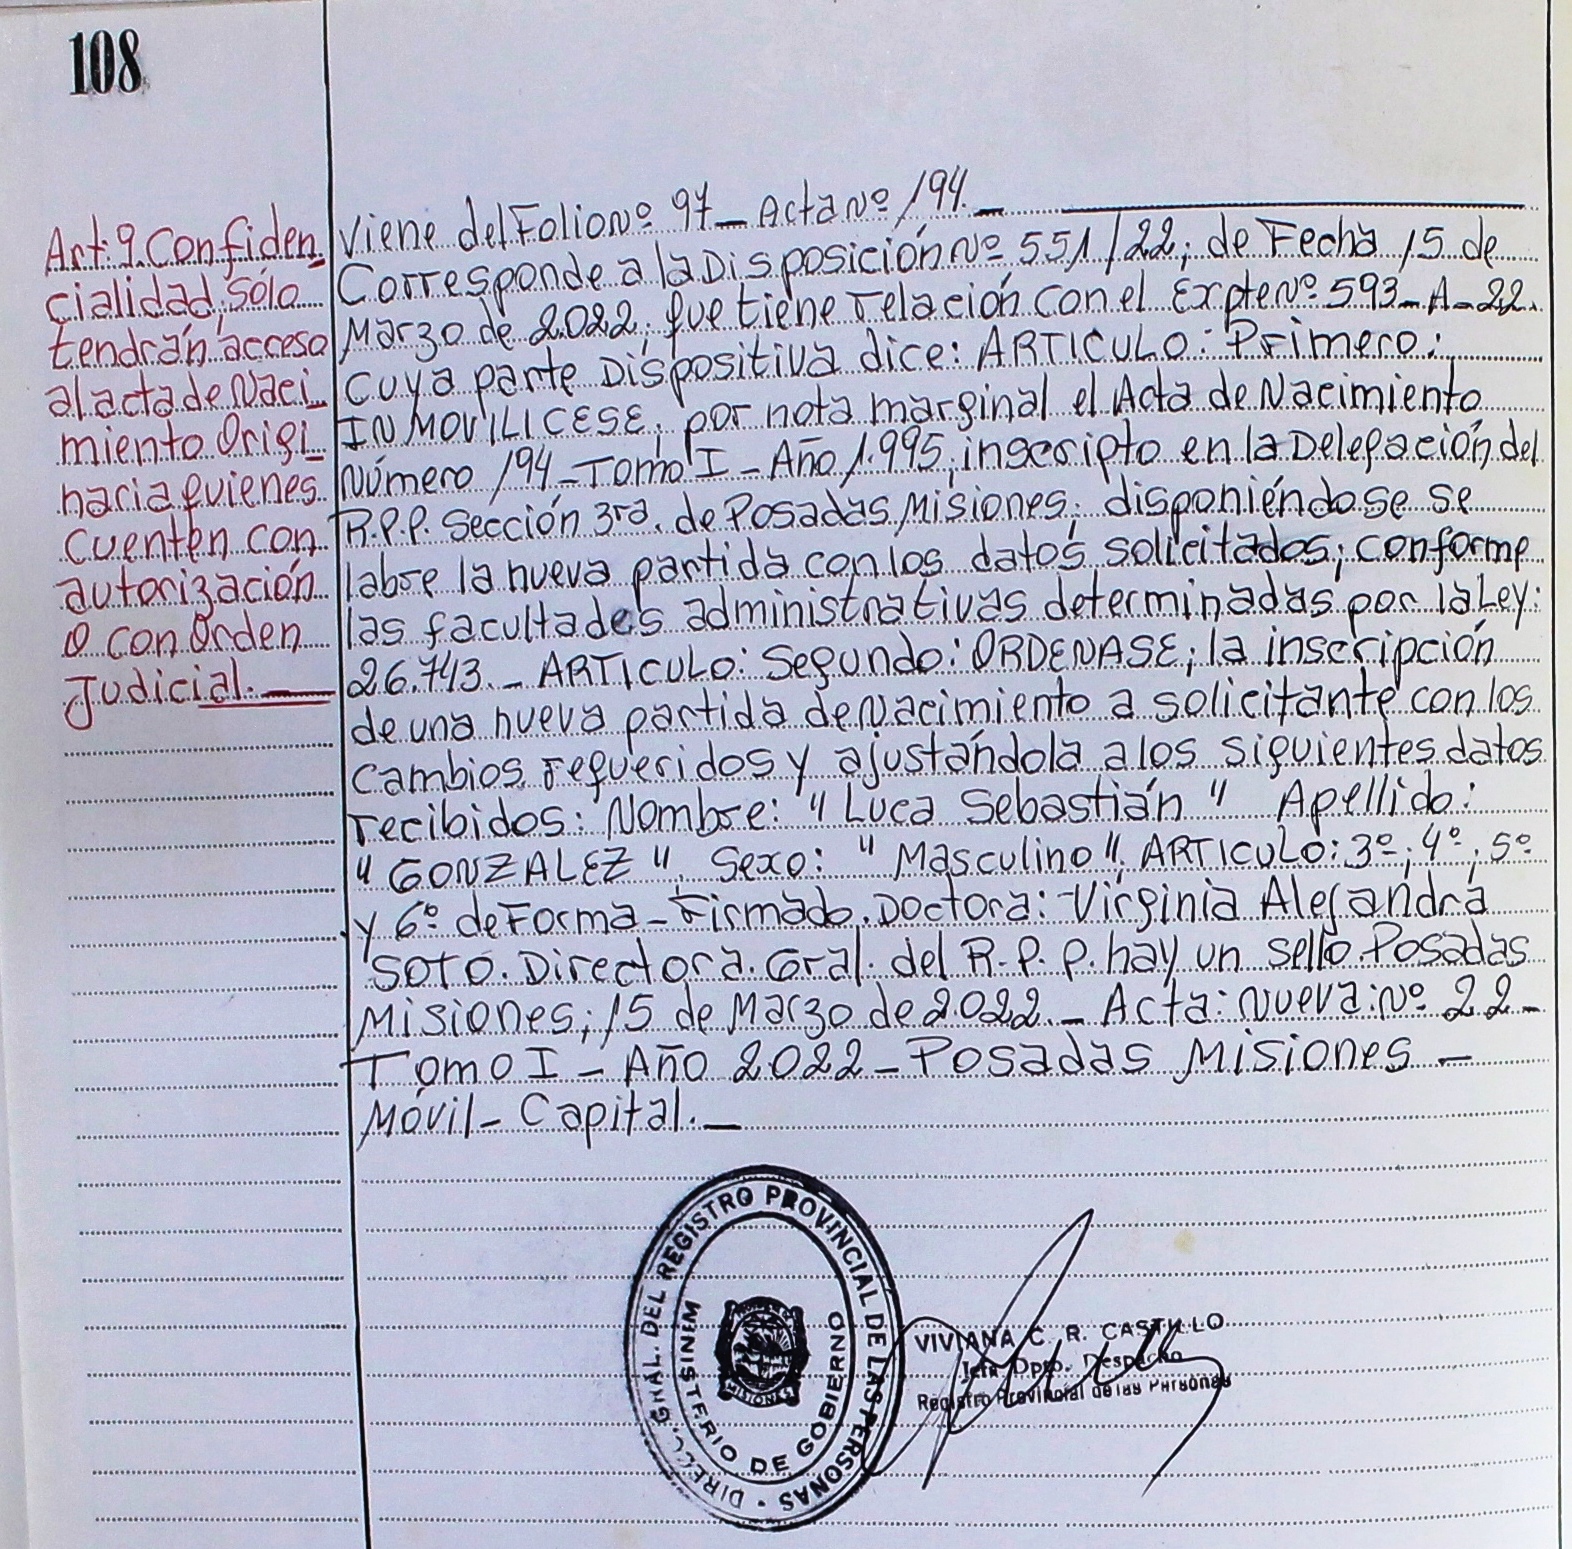 108
Art: 9. Confiden_
cialidad, sólo
tendrán acceso
al acta de Naci_
miento Origi_
naria quienes
Cuenten con
autorización
o con Orden
Judicial. ___
Viene del Folio Nº 97 _ Acta Nº 194. _
Corresponde a la Disposición Nº 551/22; de Fecha 15 de
Marzo de 2022; que tiene relación con el Expte Nº 593_A_22.
Cuya parte Dispositiva dice: ARTICULO: Primero:
INMOVILICESE; por nota marginal el Acta de Nacimiento
Número 194_Tomo I_Año 1.995, inscripto en la Delegación del
R.P.P. Sección 3ra. de Posadas Misiones; disponiéndose se
labre la nueva partida con los datos solicitados; conforme
las facultades administrativas determinadas por la Ley:
26.743._ ARTICULO: Segundo: ORDENASE; la inscripción
de una nueva partida de Nacimiento a solicitante con los
Cambios requeridos y ajustándola a los siguientes datos
recibidos: Nombre: "Luca Sebastián" Apellido:
"GONZALEZ". Sexo: "Masculino". ARTICULO: 3º; 4º; 5º
y 6º de Forma_Firmado. Doctora: Virginia Alejandra
SOTO. Directora. Gral. del R.P.P. hay un sello. Posadas
Misiones; 15 de Marzo de 2022._ Acta: Nueva: Nº 22_
Tomo I _ Año 2022_Posadas Misiones_
Móvil_ Capital._
DIRECC. GRAL. DEL REGISTRO PROVINCIAL DE LAS PERSONAS
MINISTERIO DE GOBIERNO
MISIONES
VIVIANA C. R. CASTILLO
Jefa Dpto. Despacho
Registro Provincial de las Personas